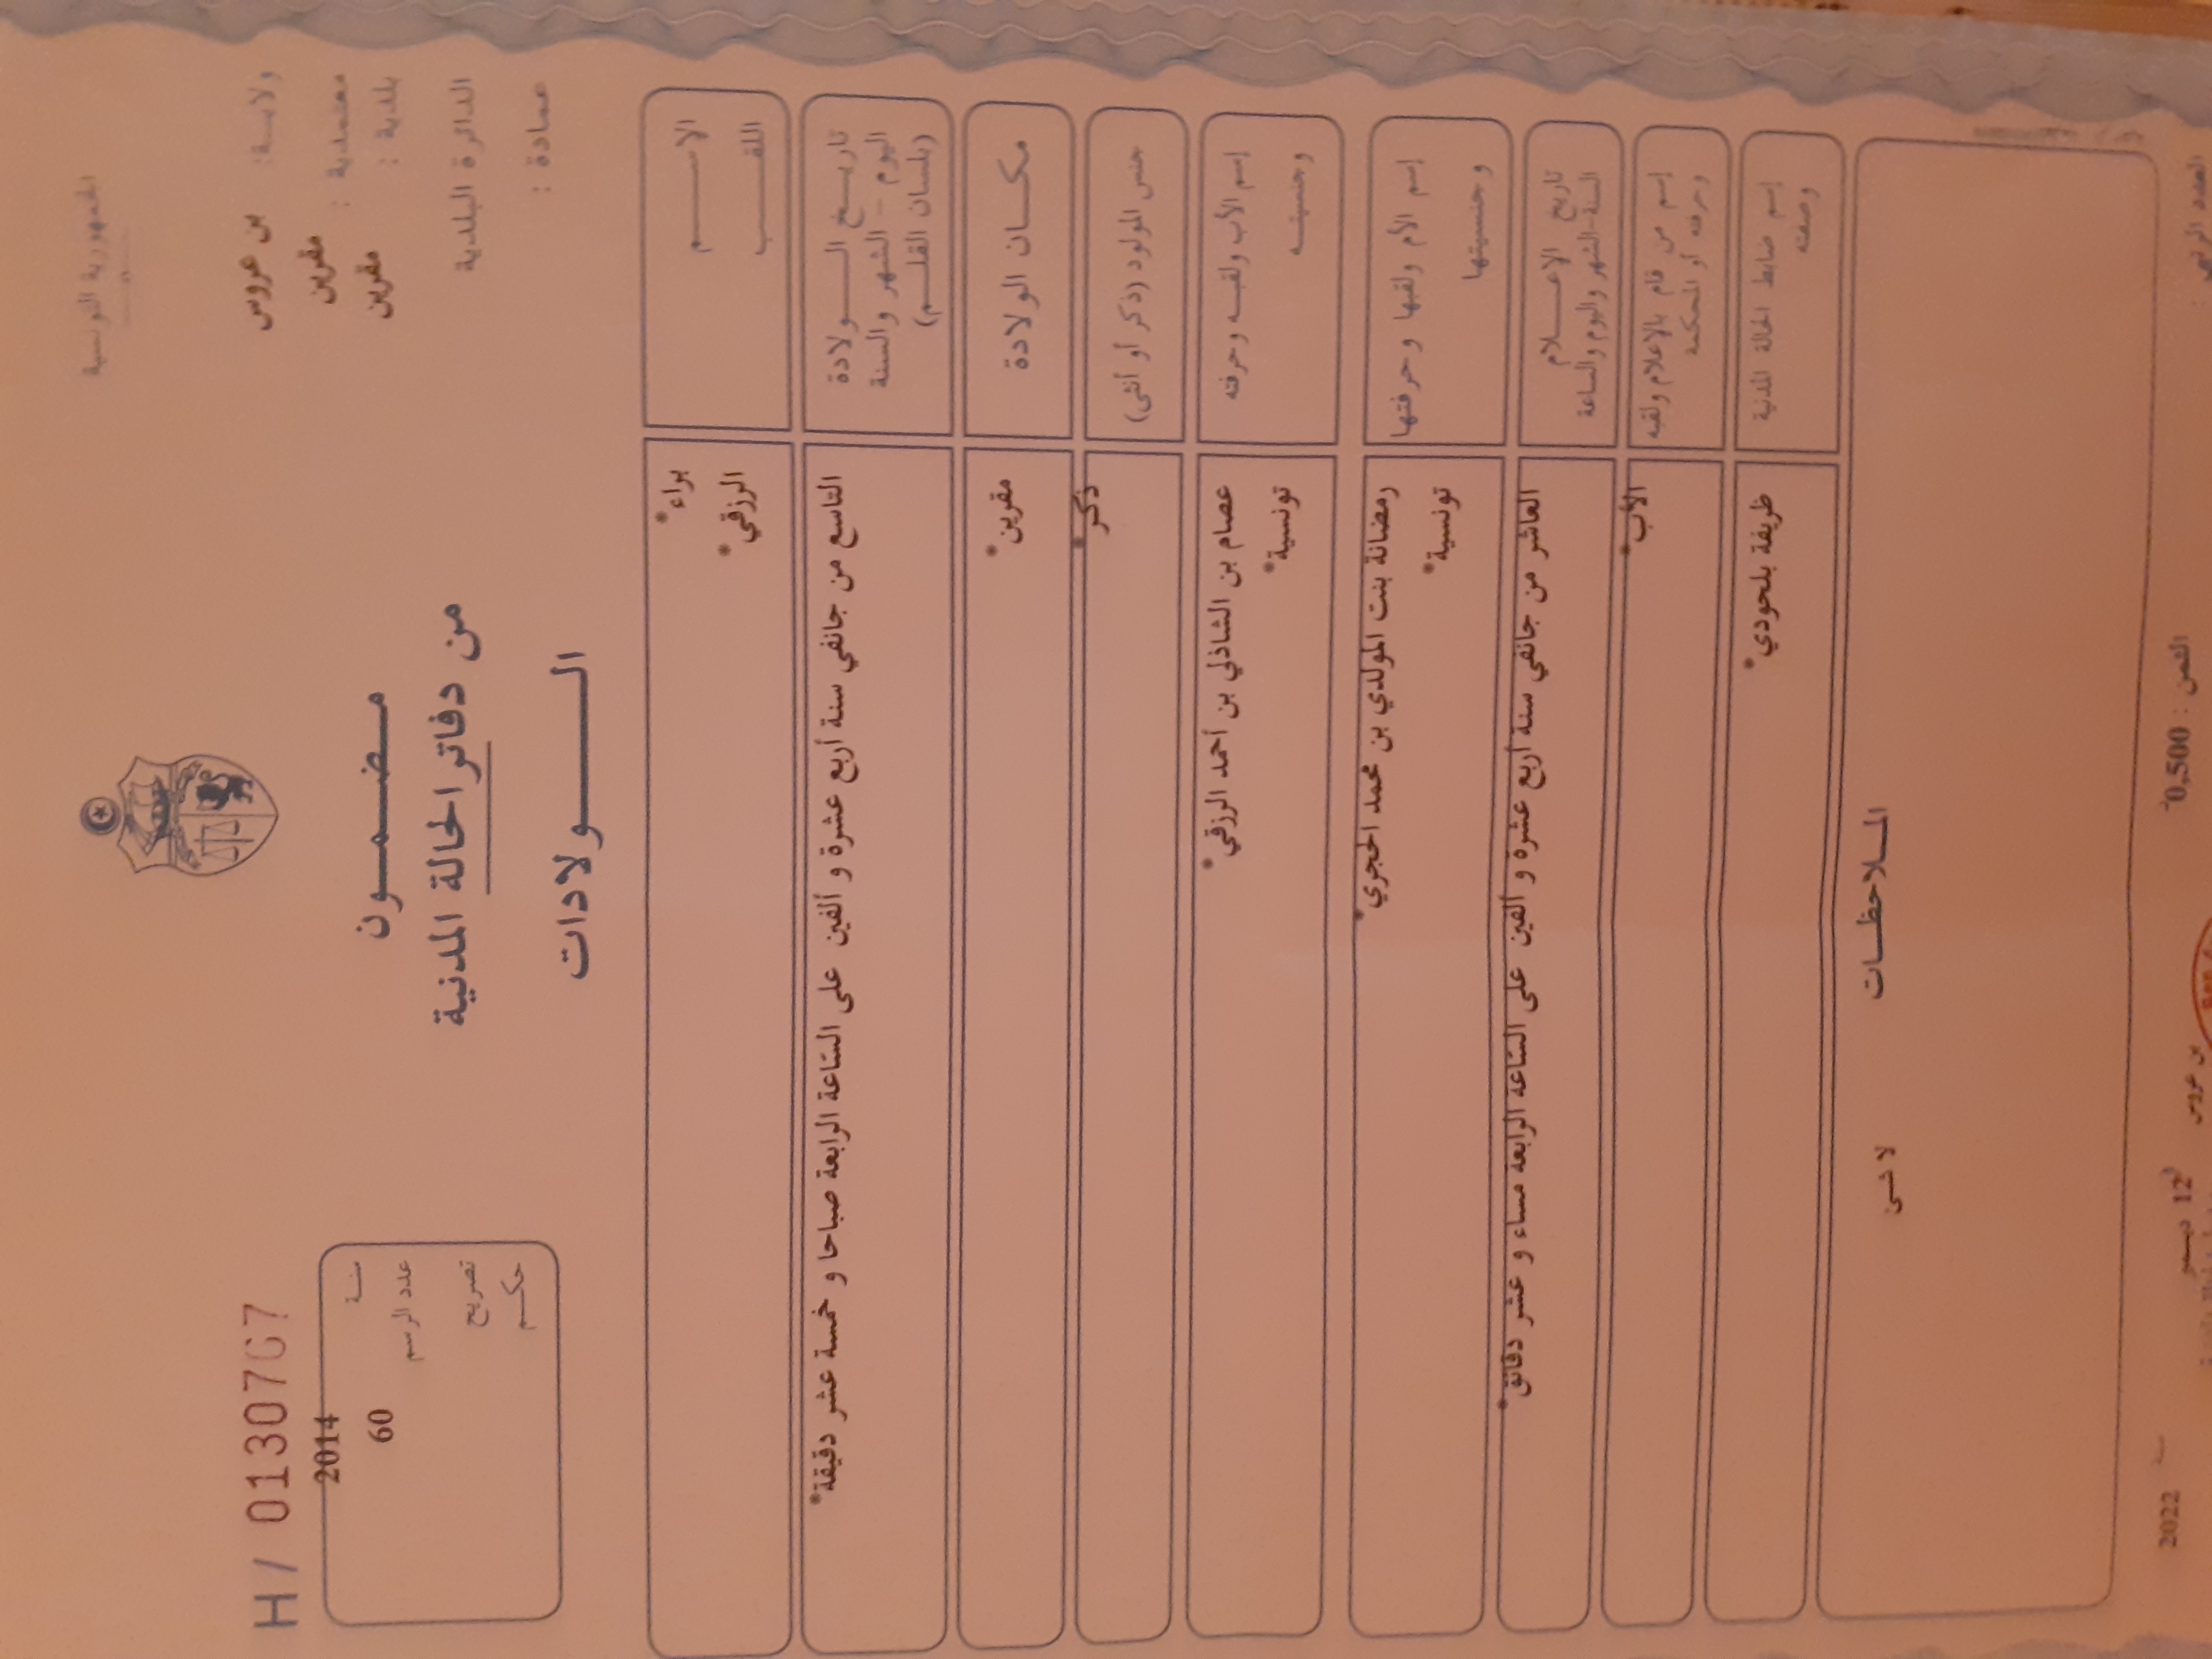 الجمهورية التونسية
ولايـــة: بن عروس
معتمدية : مقرين
بلدية : مقرين
الدائرة البلدية
عمادة :
H / 01307
سنـــة 2014
عدد الرسم 60
تصريح
حكـــم
مـــضـــمـــون
من دفاتر الحالة المدنية
الـــــولادات
الاســـــم براء*
اللقـــــب الرزقي*
تاريـــخ الـــولادة التاسع من جانفي سنة أربع عشرة و ألفين على الساعة الرابعة صباحا و خمسة عشر دقيقة*
اليوم – الشهر والسنة
(بلسان القلـــم)
مكـــان الولادة مقرين*
جنس المولود (ذكر أو أنثى) ذكر*
إسم الأب ولقبـــه وحرفته عصام بن الشاذلي بن أحمد الرزقي*
وجنسيتـــه تونسية*
إسم الأم ولقبها وحرفتها رمضانة بنت المولدي بن محمد الحجري*
وجنسيتها تونسية*
تاريخ الاعـــلام العاشر من جانفي سنة أربع عشرة و ألفين على الساعة الرابعة مساء و عشر دقائق*
السنة-الشهر واليوم والساعة
إسم من قام بالاعلام ولقبه الأب*
وحرفته أو المحكمة
إسم ضابط الحالة المدنية ظريفة بلحودي*
وصفته
المـــلاحظـــات
لا شئ
العدد الرتبي :
الثمن : 0,500
بن عروس
12 ديسمبر
2022